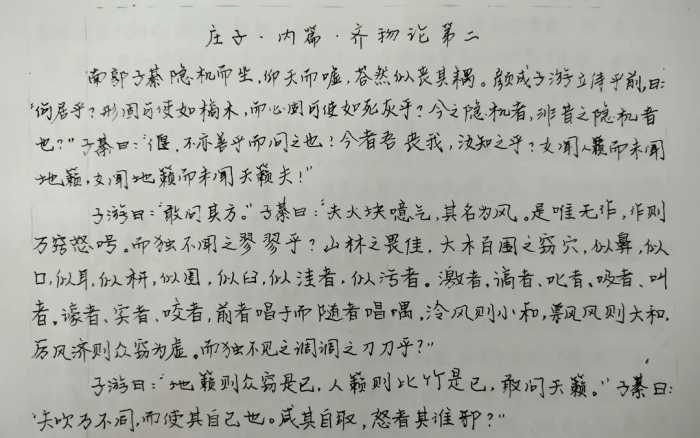 庄子·内篇·齐物论第二
南郭子綦隐机而坐,仰天而嘘,荅然似丧其耦。颜成子游立侍乎前,曰:
“何居乎?形固可使如槁木,而心固可使如死灰乎?今之隐机者,非昔之隐机者
也?”子綦曰:“偃,不亦善乎而问之也!今者吾丧我,汝知之乎?女闻人籁而未闻
地籁,女闻地籁而未闻天籁夫!”
子游曰:“敢问其方。”子綦曰:“夫大块噫气,其名为风。是唯无作,作则
万窍怒呺。而独不闻之翏翏乎?山林之畏佳,大木百围之窍穴,似鼻,似
口,似耳,似枅,似圈,似臼,似洼者,似污者。激者、谪者、叱者、吸者、叫
者、譹者、宎者、咬者,前者唱于而随者唱喁,泠风则小和,飘风则大和,
厉风济则众窍为虚。而独不见之调调之刀刀乎?”
子游曰:“地籁则众窍是已,人籁则比竹是已,敢问天籁。”子綦曰:
“夫吹万不同,而使其自己也。咸其自取,怒者其谁邪?”